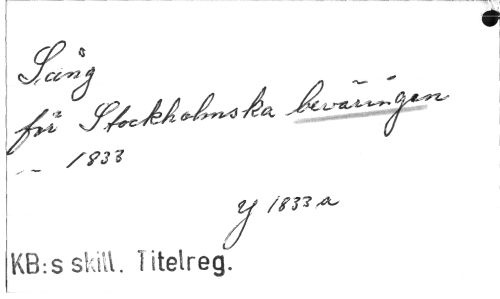 Sång
för Stockholmska beväringen
-- 1833
Y 1833 a
KB:s skill. Titelreg.